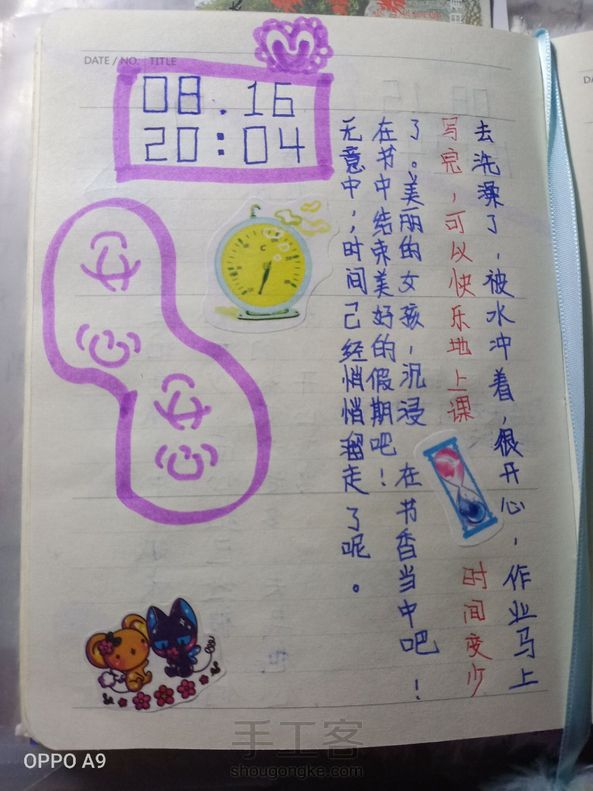 DATE / NO. TITLE
08.16
20:04
去洗澡了，被水冲着，很开心，作业马上
写完，可以快乐地上课 时间变少
了。美丽的女孩，沉浸 在书香当中吧！
在书中结束美好的假期吧！
无意中，时间已经悄悄溜走了呢。
手工客
shougongke.com
OPPO A9